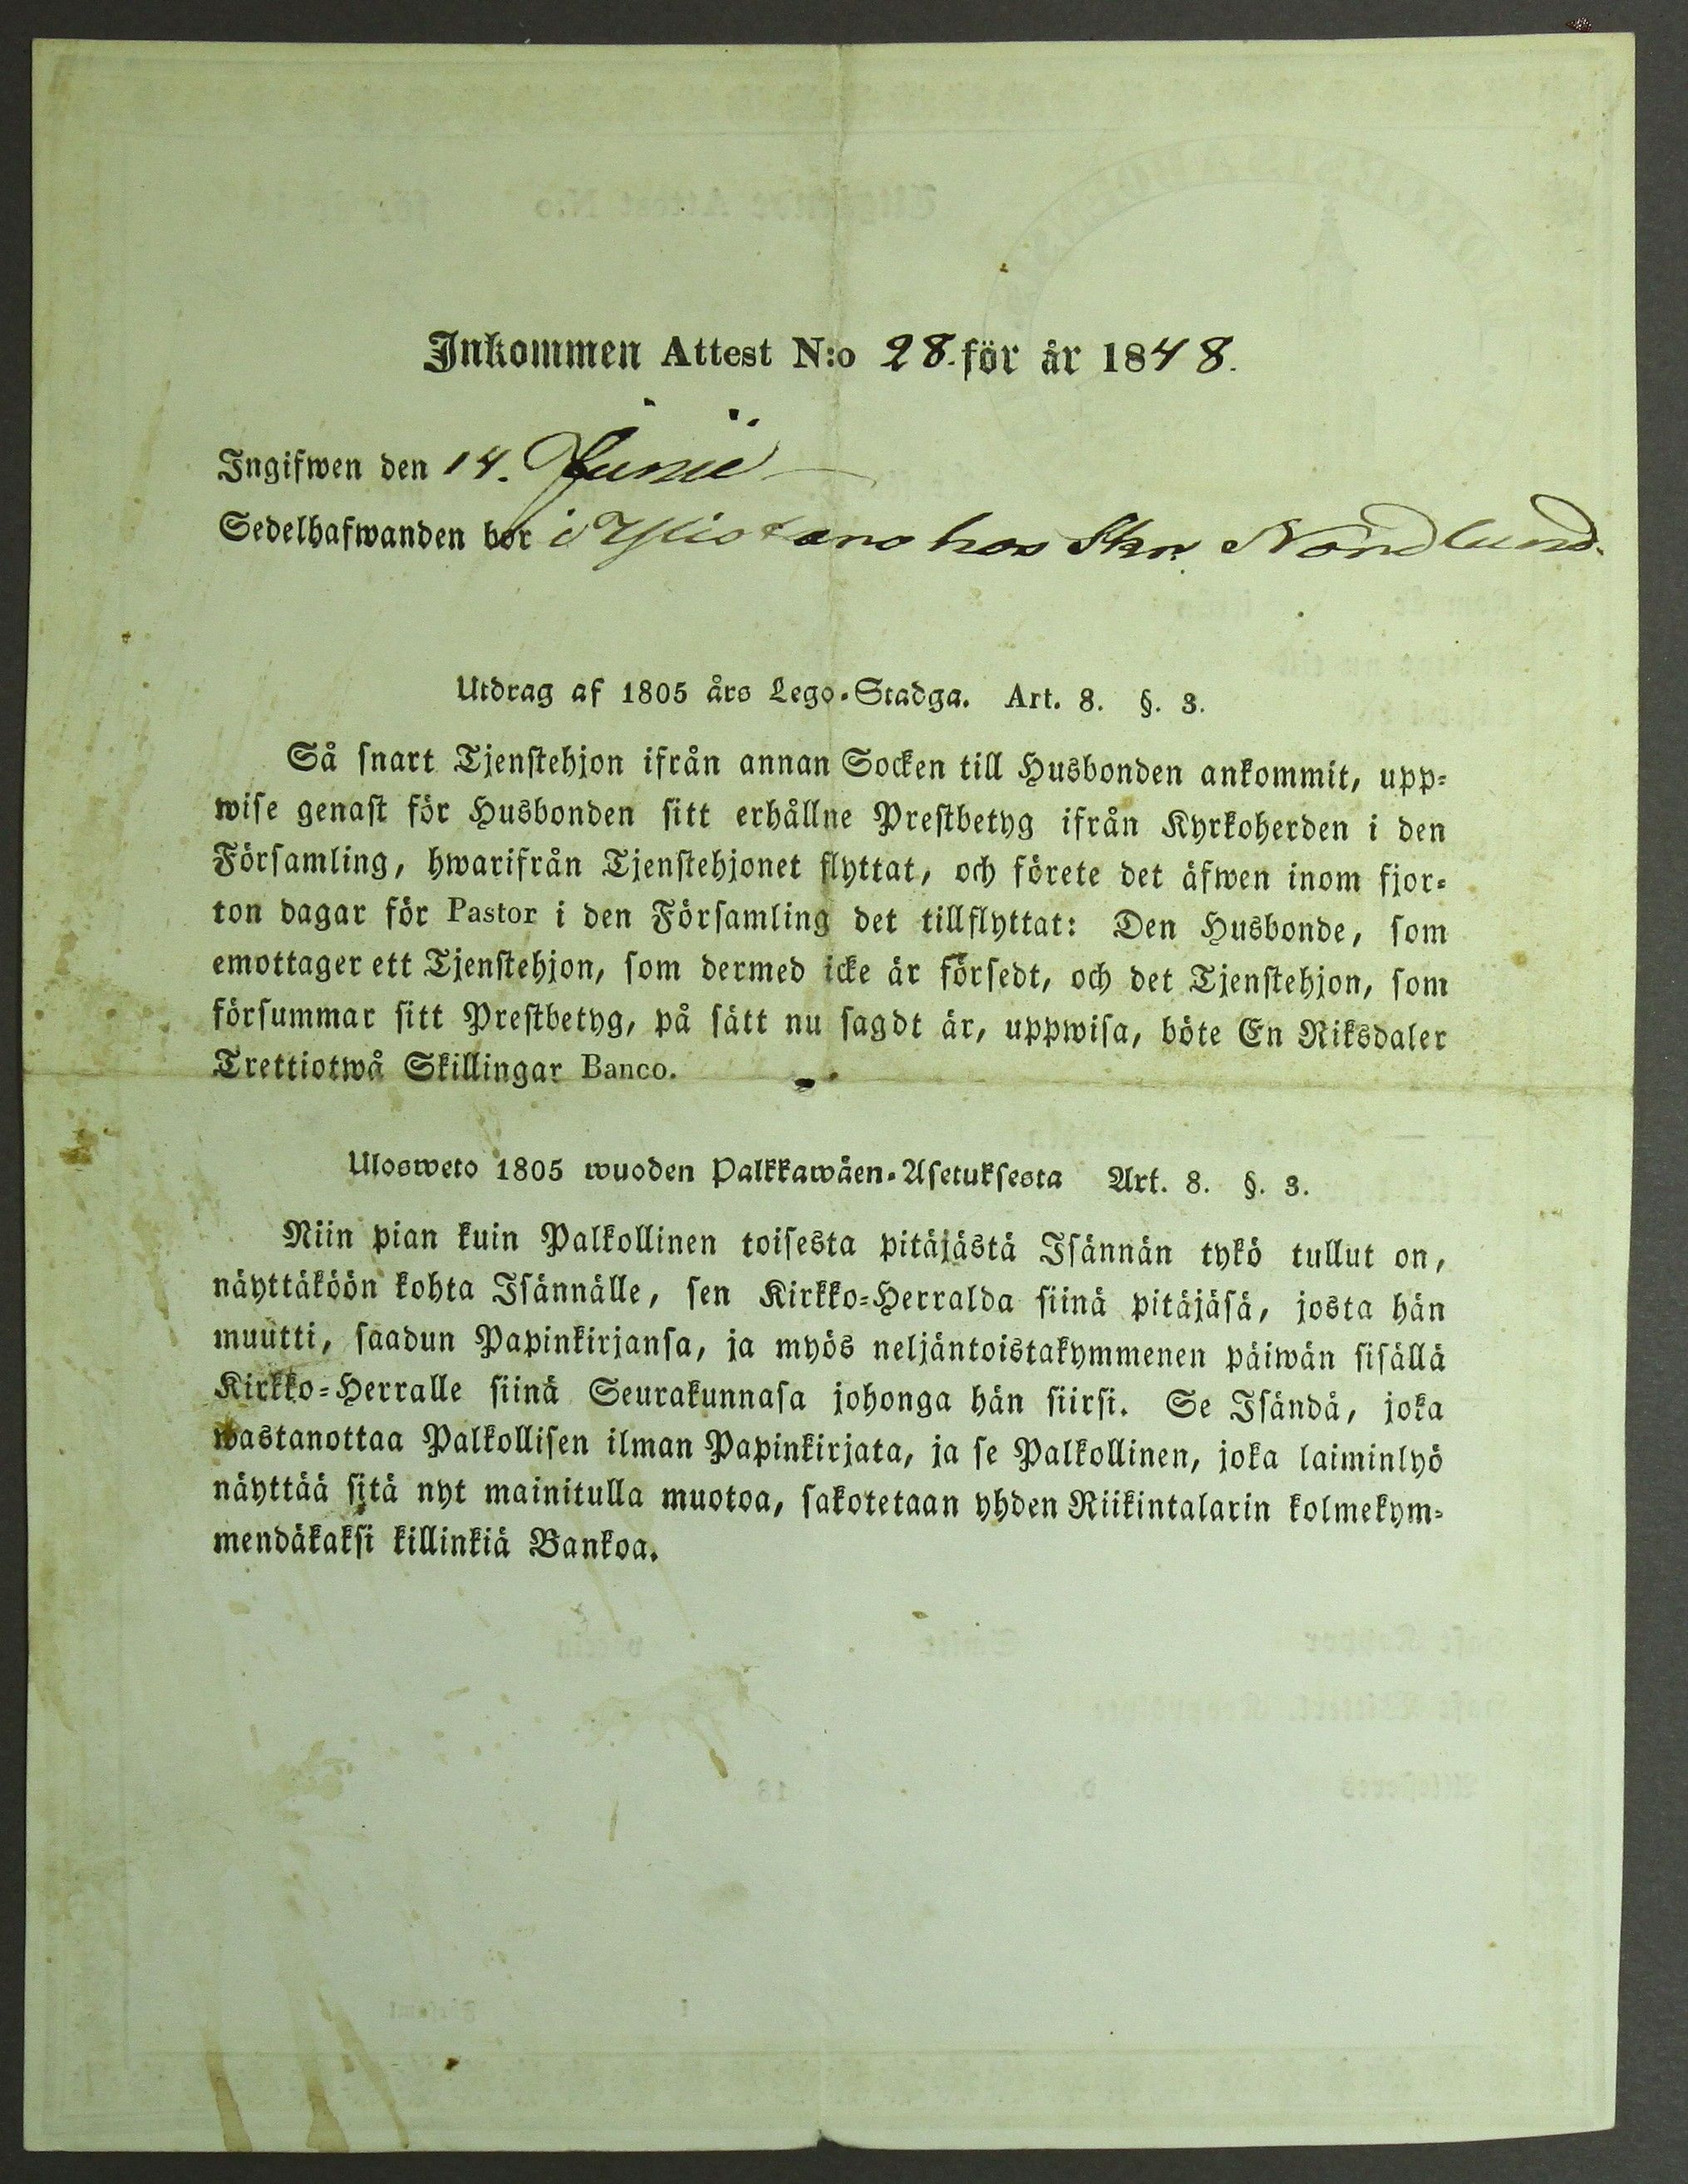 Inkommen Attest N:o 28. för år 1848.
Ingifwen den 14. Junii
Sedelhafwanden bor i Ylistaro hos Skr. Nordlund.
Utdrag af 1805 års Lego-Stadga. Art. 8. §. 3.
Så snart Tjenstehjon ifrån annan Socken till Husbonden ankommit, upp-
wise genast för Husbonden sitt erhållne Prestbetyg ifrån Kyrkoherden i den
Församling, hwarifrån Tjenstehjonet flyttat, och förete det äfwen inom fjor-
ton dagar för Pastor i den Församling det tillflyttat: Den Husbonde, som
emottager ett Tjenstehjon, som dermed icke är försedt, och det Tjenstehjon, som
försummar sitt Prestbetyg, på sätt nu sagdt är, uppwisa, böte En Riksdaler
Trettiotwå Skillingar Banco.
Ulosweto 1805 wuoden Palkkawäen-Asetuksesta Art. 8. §. 3.
Niin pian kuin Palkollinen toisesta pitäjästä Isännän tykö tullut on,
näyttäköön kohta Isännälle, sen Kirkko-Herralda siinä pitäjäsä, josta hän
muutti, saadun Papinkirjansa, ja myös neljäntoistakymmenen päiwän sisällä
Kirkko-Herralle siinä Seurakunnasa johonga hän siirsi. Se Isändä, joka
wastanottaa Palkollisen ilman Papinkirjata, ja se Palkollinen, joka laiminlyö
näyttää sitä nyt mainitulla muotoa, sakotetaan yhden Riikintalarin kolmekym-
mendäkaksi killinkiä Bankoa.